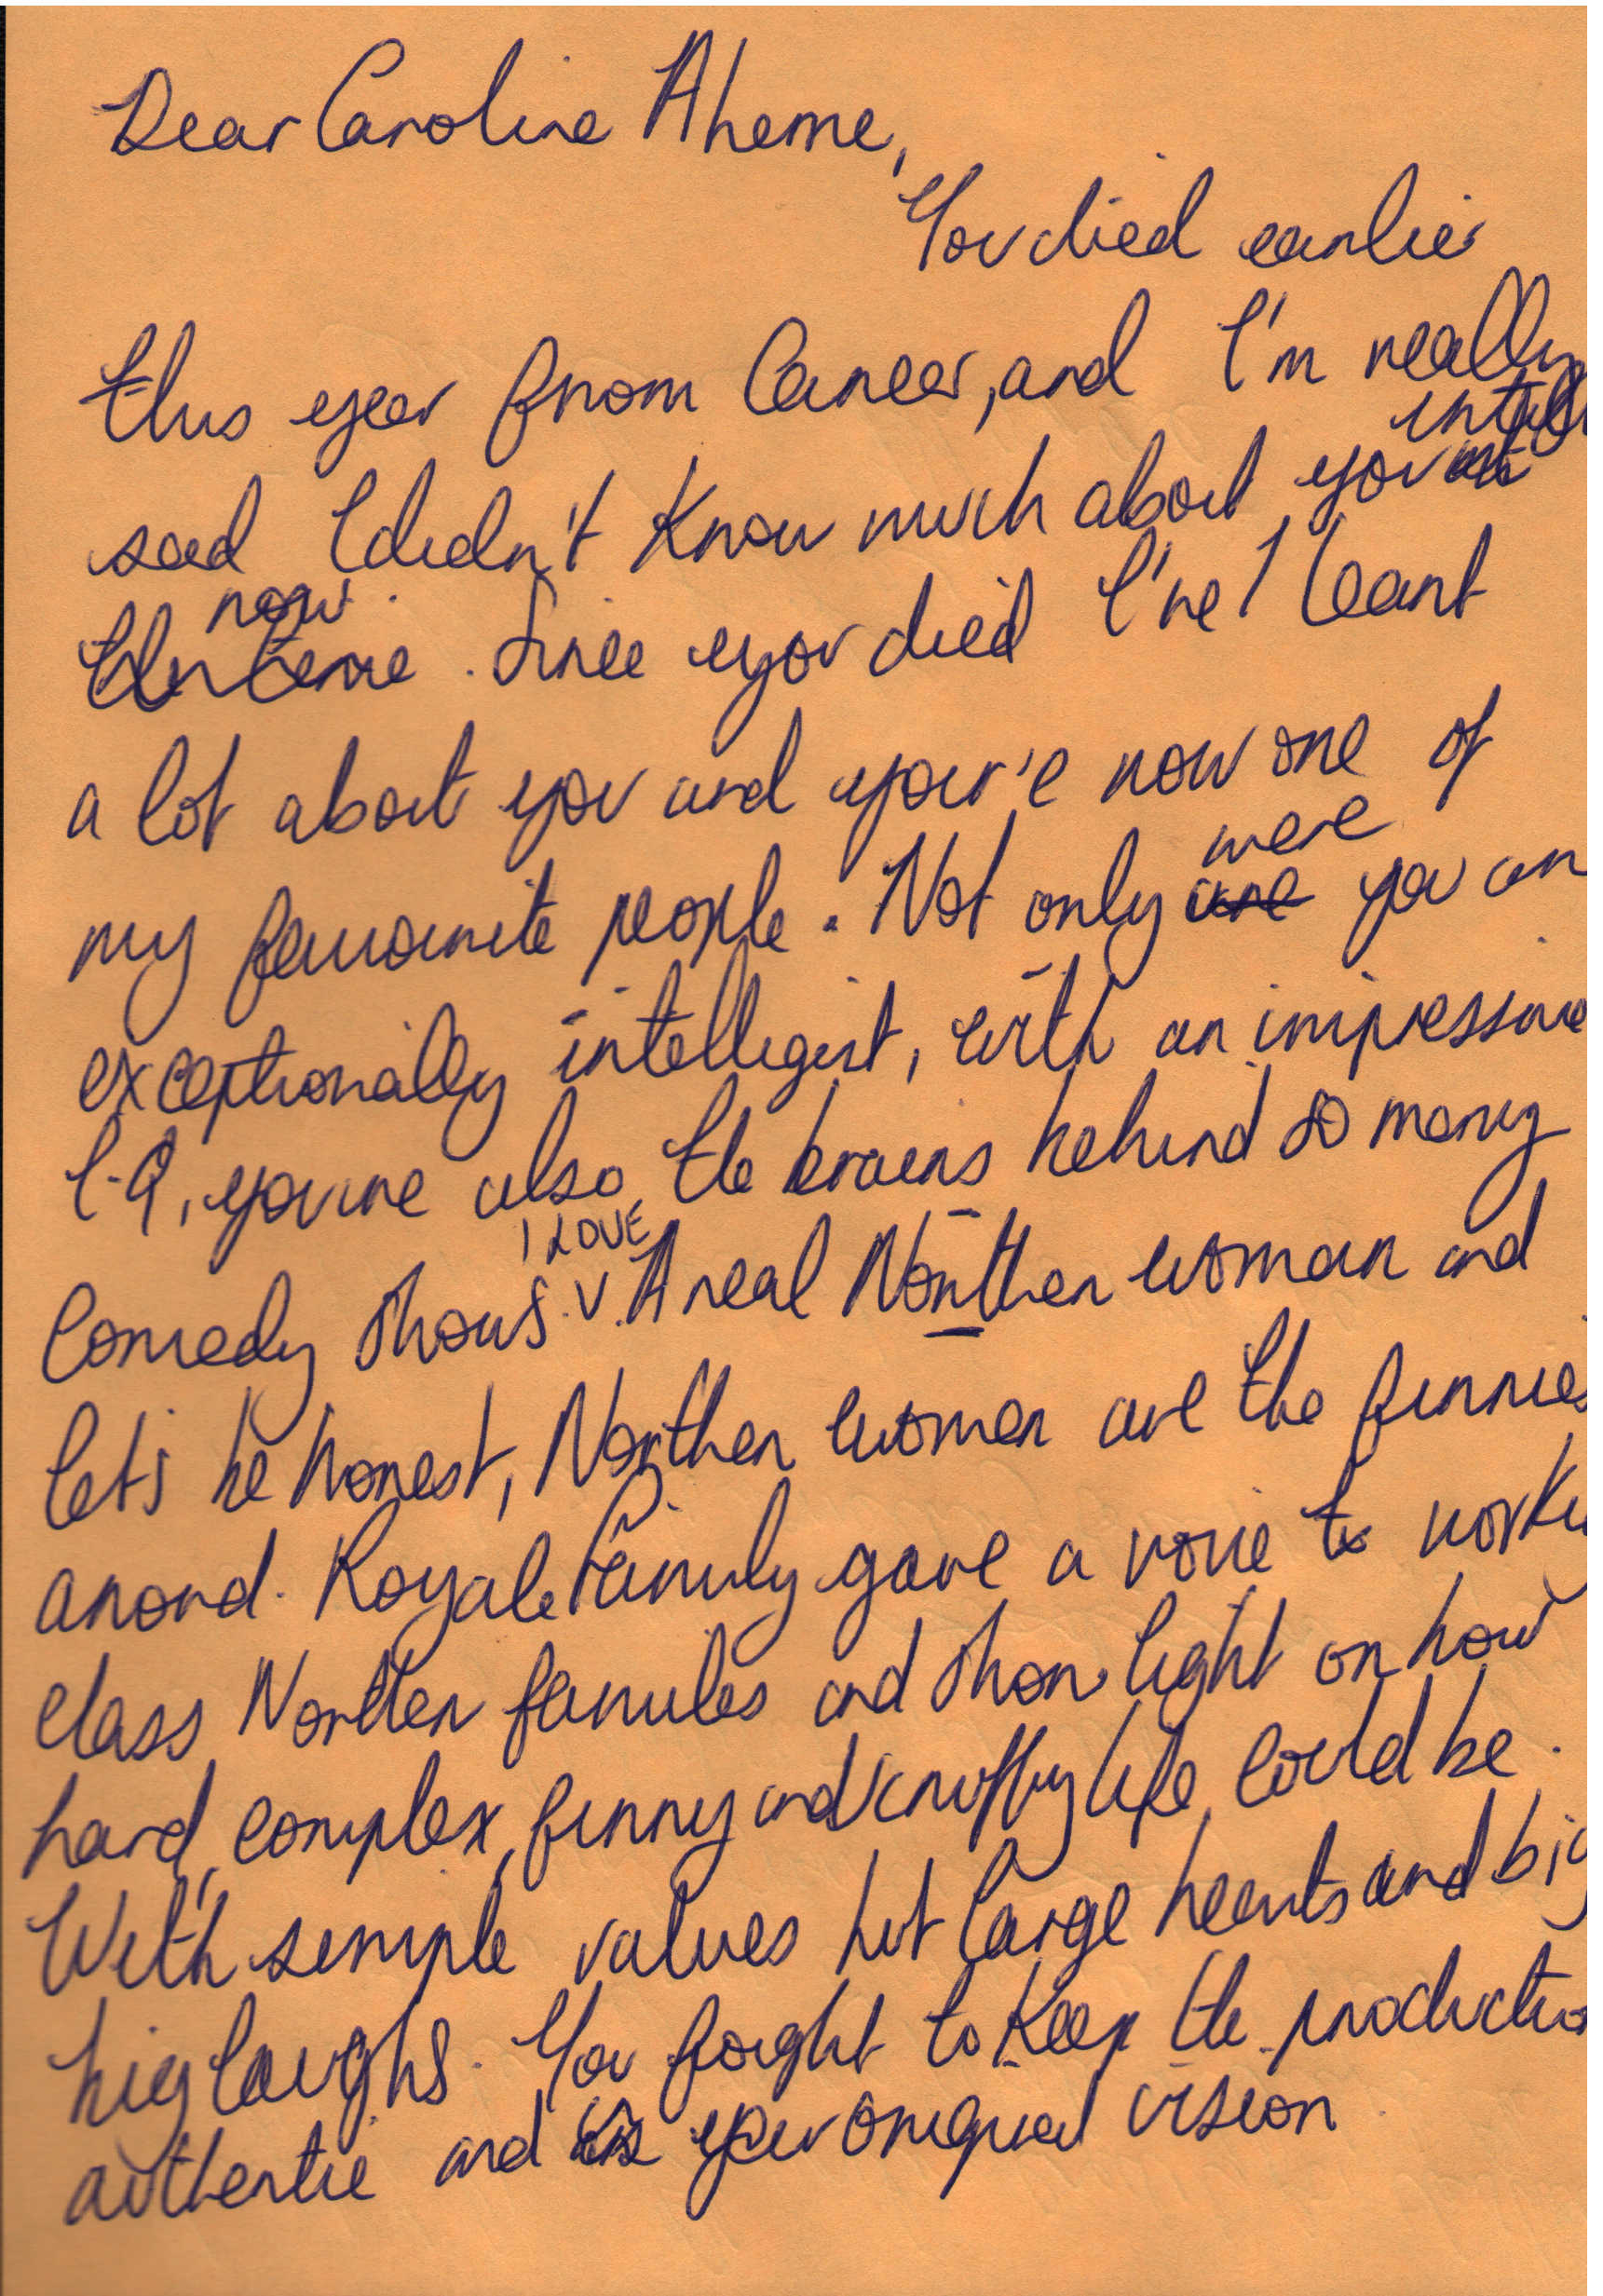 Dear Caroline Aherne,
You died earlier
this year from Cancer, and I'm really
until
sad I didn't know much about you
now.
. Since you died I've learnt
a lot about you and your'e now one of
were
my favourite people. Not only are you an
exceptionally intelligent, with an impressive
I.Q, you're also the brains behind so many
I LOVE
Comedy shows. V. A real Northen woman and
let's be honest, Northen women are the funnies
around. Royale Family gave a voice to worki
class Northen families and shone light on how
hard, complex, funny and scruffy life could be.
With simple values but large hearts and big
big laughs. You fought to keep the productio
authentic and your original vision